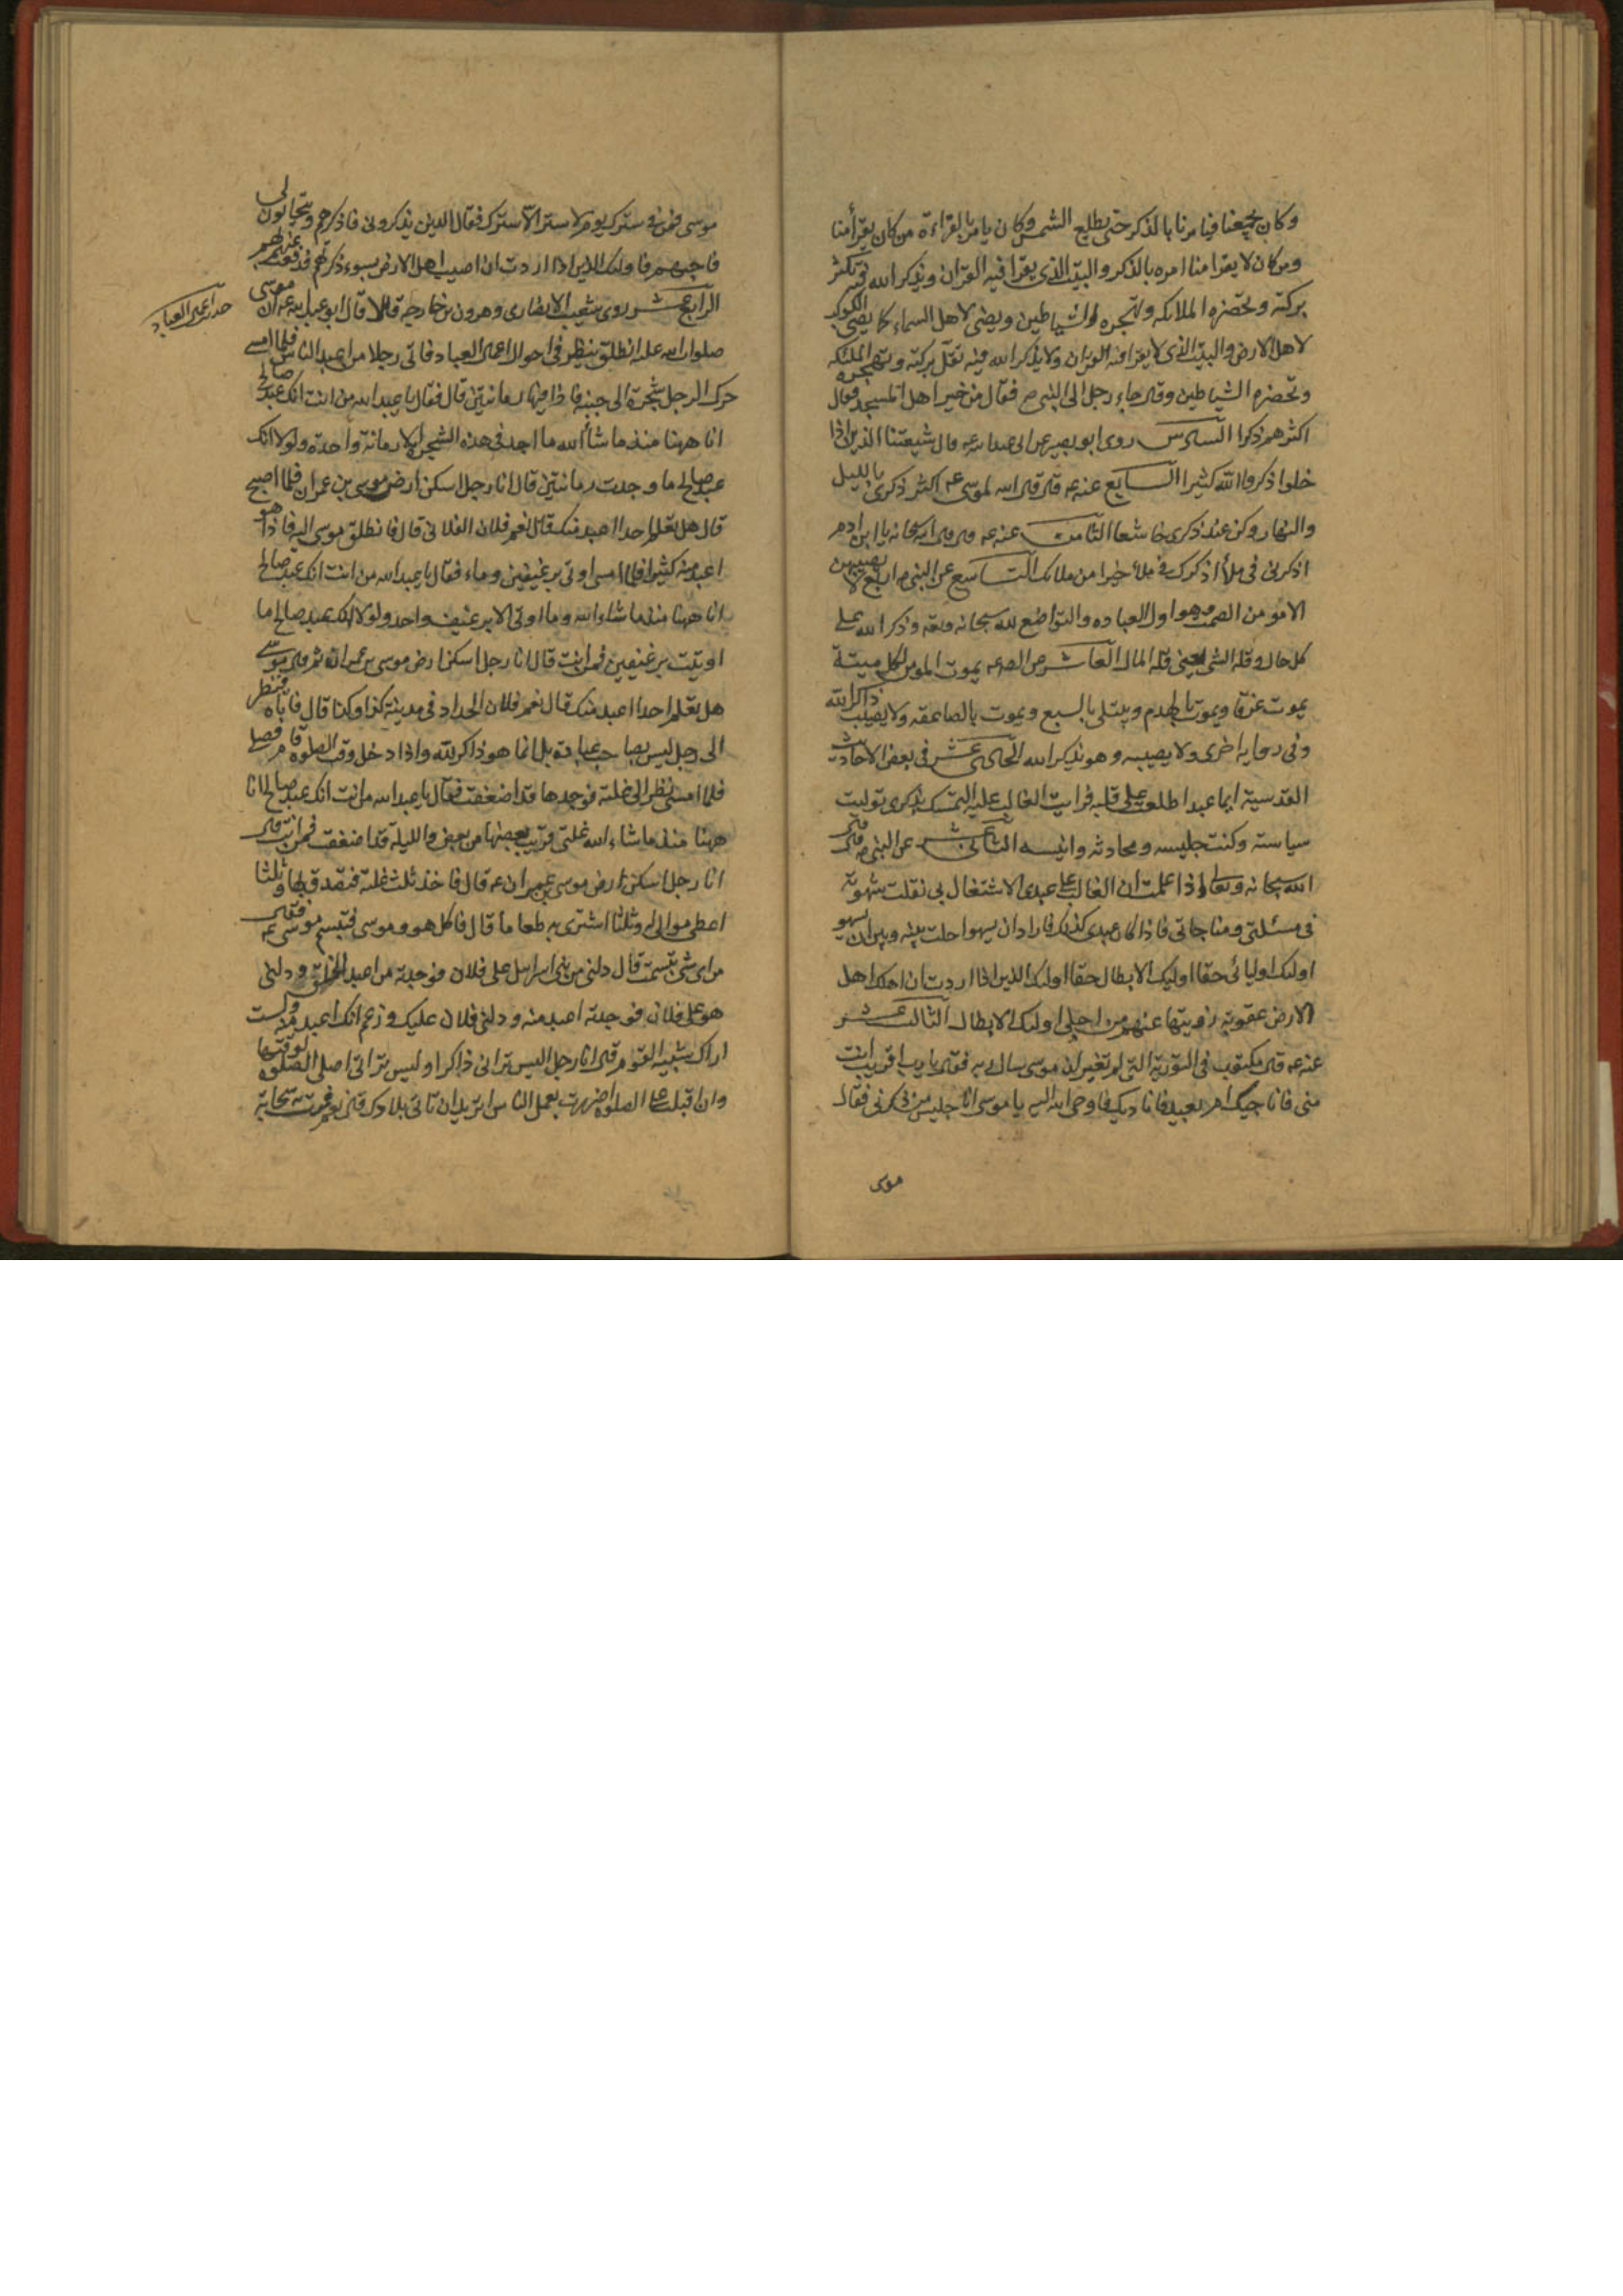 وكان يجمعنا فيامرنا بالذكر حتى يطلع الشمس وكان يامر بالقراءة من كان يقرأ منا
ومن كان لا يقرا منا امره بالذكر والبيت الذى يقرا فيه القران ويذكر الله فيه تكثر
بركته وتحضره الملائكه وتهجره الشياطين ويضئ لاهل السماء كما يضئ الكوكب
لاهل الارض والبيت الذى لا يقرا فيه القران ولا يذكر الله فيه تقل بركته وتهجره الملئكه
وتحضره الشياطين وقال جاء رجل الى النبى ص فقال من خير اهل المسجد فقال
اكثرهم ذكرا السادس روى ابو بصير عن ابى عبد الله عه قال شيعتنا الذين اذا
خلوا ذكروا الله كثيرا السابع عنه عه قال قال الله لموسى عه اكثر ذكرى بالليل
والنهار وكن عند ذكرى خاشعا الثامن عنه عه قال قال الله سبحانه يا ابن ادم
اذكرنى فى ملأ اذكرك فى ملأ خير من ملائك التاسع عن النبى ص اربع لا يصيبهن
الا مومن الصمت وهو اول العباده والتواضع لله سبحانه وتعه وذكر الله على
كل حال وقله الشئ يعنى قله المال العاشر عن الص عه يموت المومن بكل ميتة
يموت غرقا ويموت بالهدم ويبتلى بالسبع ويموت بالصاعقه ولا يصيب ذاكر الله
وفى روايه اخرى ولا يصيبه وهو يذكر الله الحادى عشر فى بعض الاحاديث
القدسية ايما عبد اطلعت على قلبه فرايت الغالب عليه التمسك بذكرى توليت
سياسته وكنت جليسه ومحادثه وانيسه الثانى عشر عن النبى ص قال قال
الله سبحانه وتعالى اذا علمت ان الغالب على عبدى الاشتغال بى نقلت شهوته
فى مسئلتى ومناجاتى فاذا كان عبدى كذلك فاراد ان يسهوا حلت بينه وبين ان يسهو
اولئك اوليائى حقا اوليك الابطال حقا اولئك الذين اذا اردت ان اهلك اهل
الارض عقوبة زويتها عنهم من اجل اولئك الابطال الثالث عشر
عنه عه قال مكتوب فى التوريه التى لم تغير ان موسى سال ربه فقال يا رب اقريب انت
منى فاناجيك ام بعيد فاناديك فاوحى الله اليه يا موسى انا جليس من ذكرنى فقال
موسى
موسى فمن فى سترك يوم لا ستر الا سترك فقال الذين يذكرونى فاذكرهم ويتحابون لى
فاحبهم فاولئك الذين اذا اردت ان اصيب اهل الارض بسوء ذكرتهم فدفعت عنهم بهم
الرابع عشر روى شعيب الانصارى وهرون بن خارجه قالا قال ابو عبد الله عه ان موسى
صلوات الله عليه انطلق ينظر فى احوال اعمال العباد فاتى رجلا من اعبد الناس فلما امسى
حد اعبد العباد
حرك الرجل شجرة الى جنبه فاذا فيها رمانتين قال فقال يا عبد الله من انت انك عبد صالح
انا ههنا منذ ما شأ الله ما اجد فى هذه الشجرة الا رمانة واحدة ولولا انك
عبد صالح ما وجدت رمانتين قال انا رجل اسكن ارض موسى بن عمران فلما اصبح
قال هل تعلم احدا اعبد منك قال نعم فلان الفلانى قال فانطلق موسى اليه فاذا هو
اعبد منه كثيرا فلما امسى اوتى برغيفين وماء فقال يا عبد الله من انت انك عبد صالح
انا ههنا منذ ما شاء الله وما اوتى الا برغيف واحد ولولا انك عبد صالح ما
اوتيت برغيفين فمن انت قال انا رجل اسكن ارض موسى بن عمران ثم قال موسى
هل تعلم احدا اعبد منك قال نعم فلان الحداد فى مدينة كذا وكذا قال فاتاه فنظر
الى رجل ليس بصاحب عبادة بل انما هو ذاكر لله واذا دخل وقت الصلوة قام فصلى
فلما امسى نظر الى غلته فوجدها قد اضعفت فقال يا عبد الله من انت انك عبد صالح انا
ههنا منذ ما شاء الله غلتى قريب بعضها من بعض والليلة قد اضعفت فمن انت قال
انا رجل اسكن ارض موسى بن عمران عه قال فاخذ ثلث غلته فتصدق بها وثلثا
اعطى مولى له وثلثا اشترى به طعاما قال فاكل هو وموسى فتبسم موسى عه فقال
من اى شئ تبسمت قال دلنى من بنى اسرائيل على فلان فوجدته من اعبد الخلق ودلنى
هو على فلان فوجدته اعبد منه ودلنى فلان عليك وزعم انك اعبد منه ولست
اراك شبيه القوم قال انا رجل اليس ترانى ذاكرا اوليس ترانى اصلى الصلوه لوقتها
وان اقبلت على الصلوه اضررت بعمل الناس اتريد ان تاتى بلادك قال نعم فمرت به سحابة